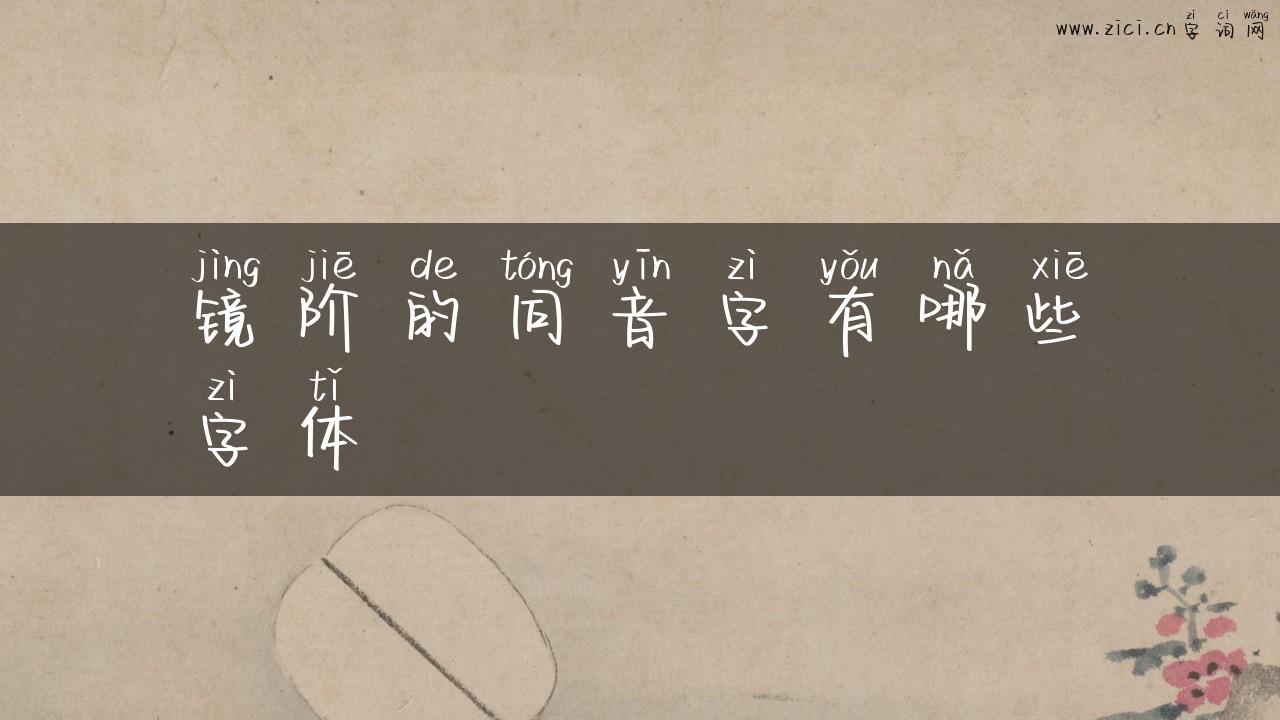 zì cí wǎng
www.zici.cn 字词网
jìng jiē de tóng yīn zì yǒu nǎ xiē
镜阶的同音字有哪些
zì tǐ
字体